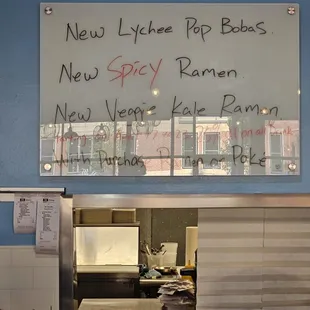 New Lychee Pop Bobas.
New Spicy Ramen
New Veggie Kale Ramen
with Purchase Ramen or Poké